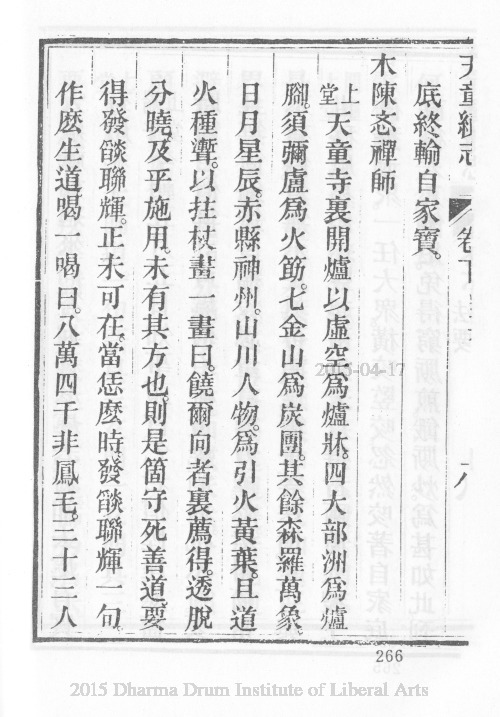 天童續志 卷下 八
底終輸自家寶。
木陳忞禪師
上堂天童寺裏開爐以虛空爲爐牀。四大部洲爲爐
腳。須彌盧爲火筯。七金山爲炭團。其餘森羅萬象。
日月星辰。赤縣神州。山川人物。爲引火黃葉。且道
火種聻。以拄杖畫一畫曰。饒爾向者裏薦得。透脫
分曉。及乎施用。未有其方也。則是箇守死善道。要
得發燄聯輝。正未可在。當恁麽時。發燄聯輝一句。
作麽生道。喝一喝曰。八萬四千非鳳毛。三十三人
2015-04-17
266
2015 Dharma Drum Institute of Liberal Arts